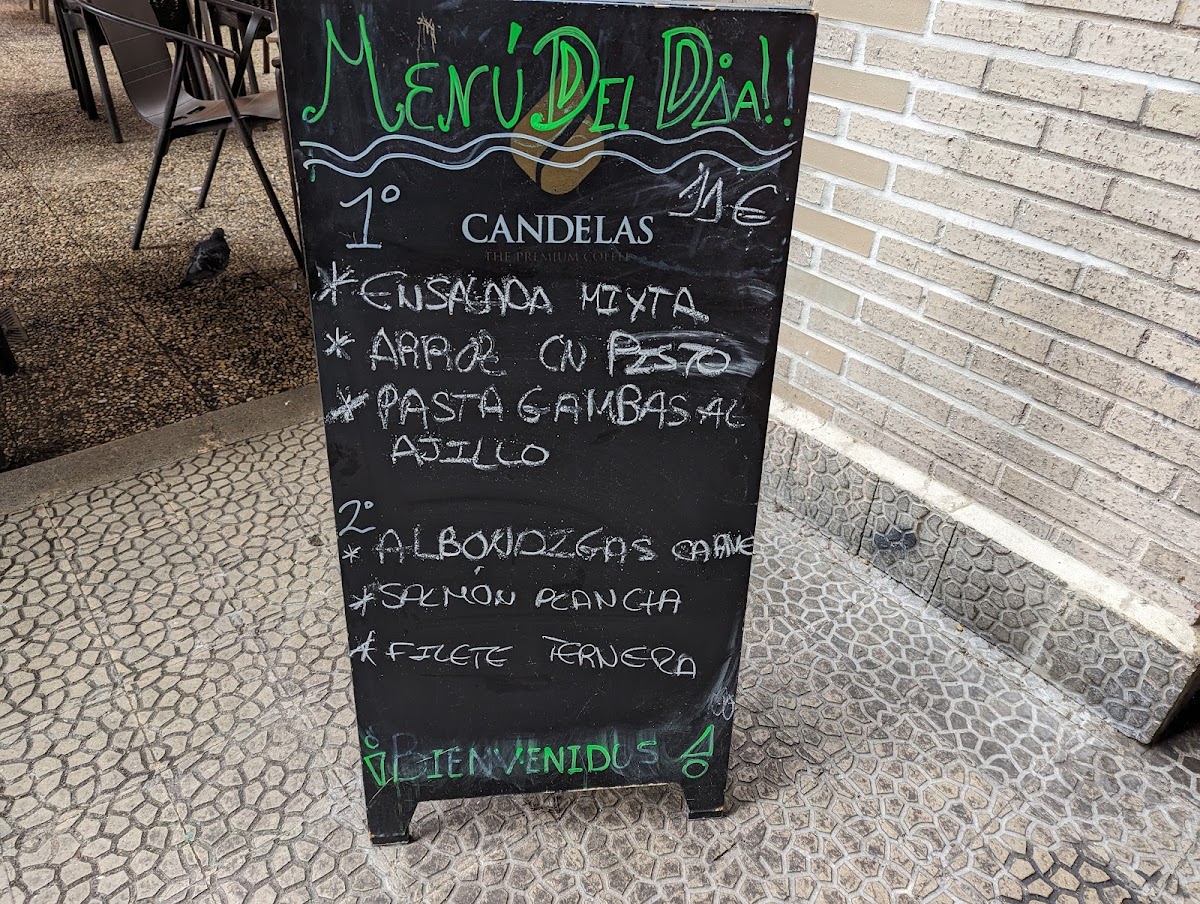 Menú Del Día!!
1º
11€
CANDELAS
THE PREMIUM COFFEE
* ENSALADA MIXTA
* ARROZ CN PISTO
* PASTA GAMBAS AL
AJILLO
2º
* ALBONDIGAS CARNE
* SALMÓN PLANCHA
* FILETE TERNERA
¡BIENVENIDOS!